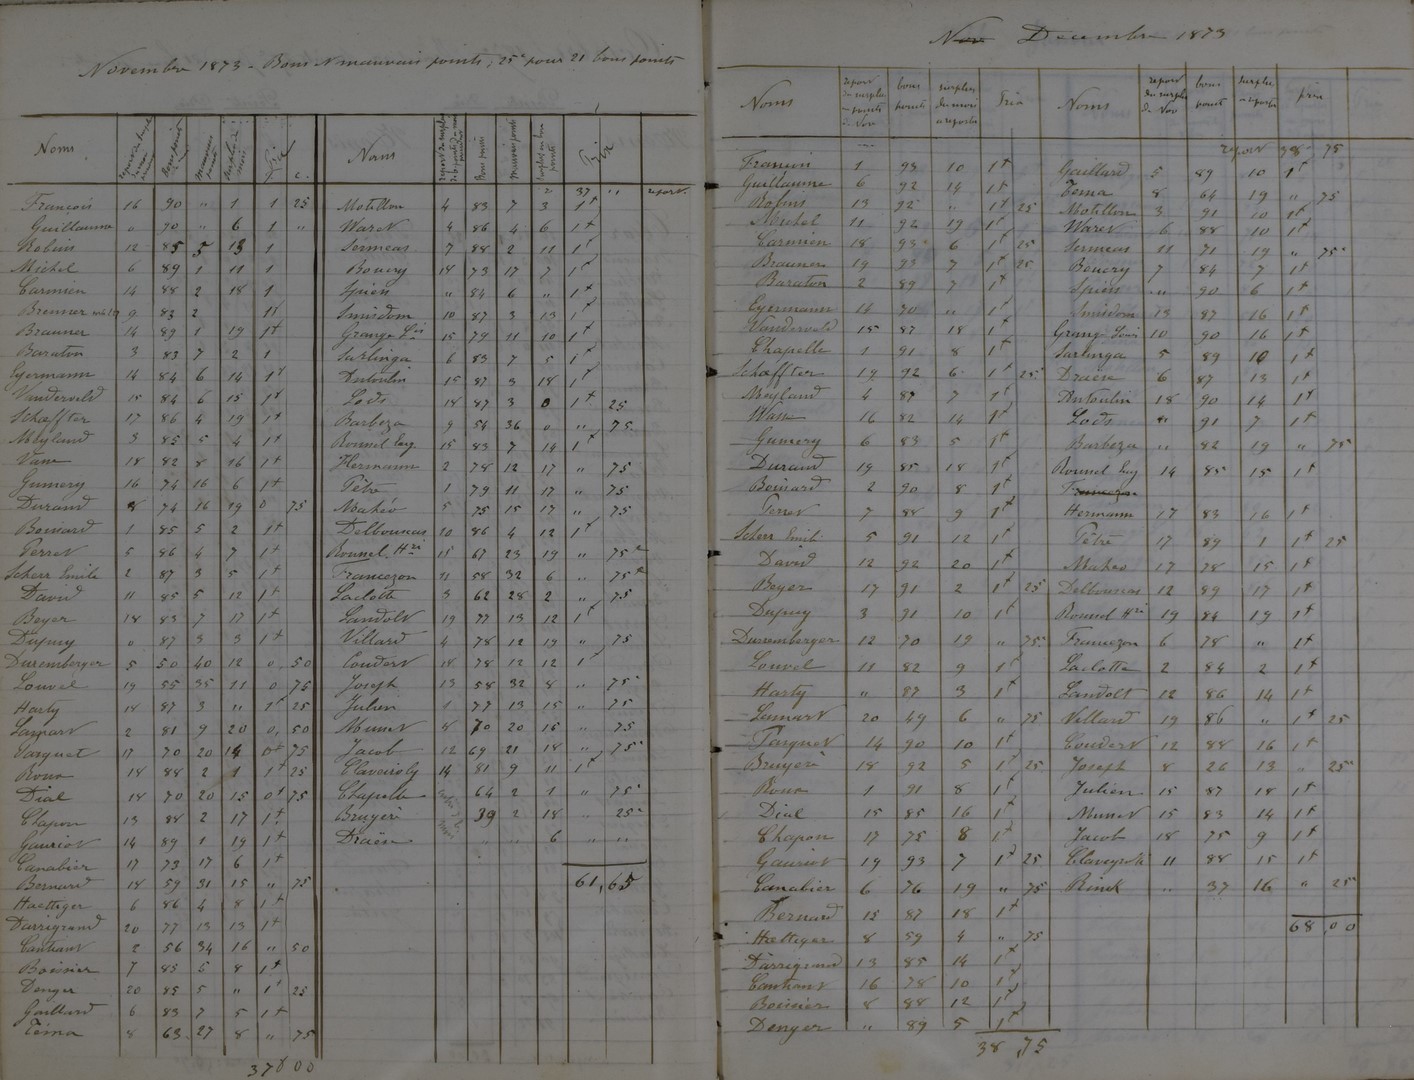 Novembre 1873 - Bons & mauvais points, 25c pour 21 bons points
Noms
Prix c.
Noms
Prix
2 37 " report
François 16 90 " 1 1 25
Guillaume 0 90 " 6 1 "
Robins 12 85 5 13 1
Michel 6 89 1 11 1
Carmien 14 88 2 18 1
Brenner 9 83 2
Brauner 14 89 1 19 1f
Baraton 3 83 7 2 1
Eyermann 14 84 6 14 1f
Vanderveld 15 84 6 15 1f
Schaffter 17 86 4 19 1f
Meyland 3 85 5 4 1f
Vane 18 82 8 16 1f
Gumery 16 74 16 6 1f
Durand 8 74 16 19 0 75
Boinard 1 85 5 2 1f
Perret 5 86 4 7 1f
Scherr Emile 2 87 3 5 1f
David 11 85 5 12 1f
Beyer 18 83 7 17 1f
Dupuy 0 87 3 3 1f
Duremberger 5 50 40 12 0 50
Louvel 19 55 35 11 0 75
Harty 18 87 3 " 1f 25
2 81 9 20 0 50
Parquet 17 70 20 14 0f 75
Roux 18 88 2 1 1f 25
Dial 18 70 20 15 0f 75
Chapon 13 88 2 17 1f
Gauriot 14 89 1 19 1f
Canabier 17 73 17 6 1f
Bernard 18 59 31 15 " 75
Haettiger 6 86 4 8 1f
Darrigrand 20 77 13 13 1f
Canhant 2 56 34 16 " 50
Boissier 7 85 5 8 1f
Denger 20 85 5 " 1f 25
Gaillard 6 83 7 5 1f
Téma 8 63 27 8 " 75
37f00
Motillon 4 83 7 3 1f
Waret 4 86 4 6 1f
Sermeas 7 88 2 11 1f
Bouery 18 73 17 7 1f
Spien " 84 6 " 1f
Smisdom 10 87 3 13 1f
Grange Ls 15 79 11 10 1f
Sarlinga 6 83 7 5 1f
Antoulin 15 87 3 18 1f
Lods 18 87 3 0 1f 25
Barbeza 9 54 36 0 " 75
Rounel Eug 15 83 7 14 1f
Hermann 2 78 12 17 " 75
Pétré 1 79 11 17 " 75
Mahéo 5 75 15 17 " 75
Delbouscas 20 86 4 12 1f
Rounel Hri 15 67 23 19 " 75c
Francezon 11 58 32 6 " 75c
Laclotte 3 62 28 2 " 75
Landolt 19 77 13 12 1f
Villard 4 78 12 19 " 75
Coudert 18 78 12 12 1f
Joseph 13 58 32 8 " 75c
Julien 1 77 13 15 " 75
Munet 8 70 20 15 " 75
Jacob 12 69 21 18 " 75c
Claveiroly 14 81 9 11 1f
Chapelle 64 2 1 " 75c
Bruyère 39 2 18 " 25c
Draëse " " 6 " "
61,65
Nov Décembre 1873
Noms
report du surplus points de Nov
bons points
surplus du mois à reporter
Prix
Noms
report du surplus de Nov
bons points
surplus à reporter
prix
report 38 75
François 1 93 10 1f
Guillaume 6 92 14 1f
Robins 13 92 " 1f 25
Michel 11 92 19 1f
Carmien 18 93 6 1f 25
Brauner 19 93 7 1f 25
Baraton 2 89 7 1f
Eyermann 14 90 " 1f
Vanderveld 15 87 18 1f
Chapelle 1 91 8 1f
Schaffter 19 92 6 1f 25c
Meyland 4 87 7 1f
Wane 16 82 14 1f
Gumery 6 83 5 1f
Durand 19 85 18 1f
Boinard 2 90 8 1f
Perret 7 88 9 1f
Scherr Emile 5 91 12 1f
David 12 92 20 1f
Beyer 17 91 2 1f 25
Dupuy 3 91 10 1f
Duremberger 12 70 19 " 75c
Louvel 11 82 9 1f
Harty " 87 3 1f
20 49 6 " 75
Parquet 14 90 10 1f
Bruyère 18 92 5 1f 25
Roux 1 91 8 1f
Dial 15 85 16 1f
Chapon 17 75 8 1f
Gauriot 19 93 7 1f 25
Canabier 6 76 19 " 75
Bernard 15 87 18 1f
Haettiger 8 59 4 " 75
Darrigrand 13 85 14 1f
Canhant 16 78 10 1f
Boissier 8 88 12 1f
Denger " 89 5 1f
38,75
Gaillard 5 89 10 1f
Tema 8 64 19 " 75
Motillon 3 91 10 1f
Waret 6 88 10 1f
Sermeas 11 71 19 " 75c
Bouery 7 84 7 1f
Spien " 90 6 1f
Smisdom 13 87 16 1f
Grange Louis 10 90 16 1f
Sarlinga 5 89 10 1f
Draëse 6 87 13 1f
Antoulin 18 90 14 1f
Lods " 91 7 1f
Barbeza " 82 19 " 75
Rounel Eug 14 85 15 1f
Francezon
Hermann 17 83 16 1f
Pétré 17 89 1 1f 25
Maheo 17 78 15 1f
Delbouscas 12 89 17 1f
Rounel Hri 19 84 19 1f
Francezon 6 78 " 1f
Laclotte 2 84 2 1f
Landolt 12 86 14 1f
Villard 19 86 " 1f 25
Coudert 12 88 16 1f
Joseph 8 26 13 " 25c
Julien 15 87 18 1f
Munet 15 83 14 1f
Jacob 18 75 9 1f
Claveyroli 11 88 15 1f
Rinck " 37 16 " 25
68,00